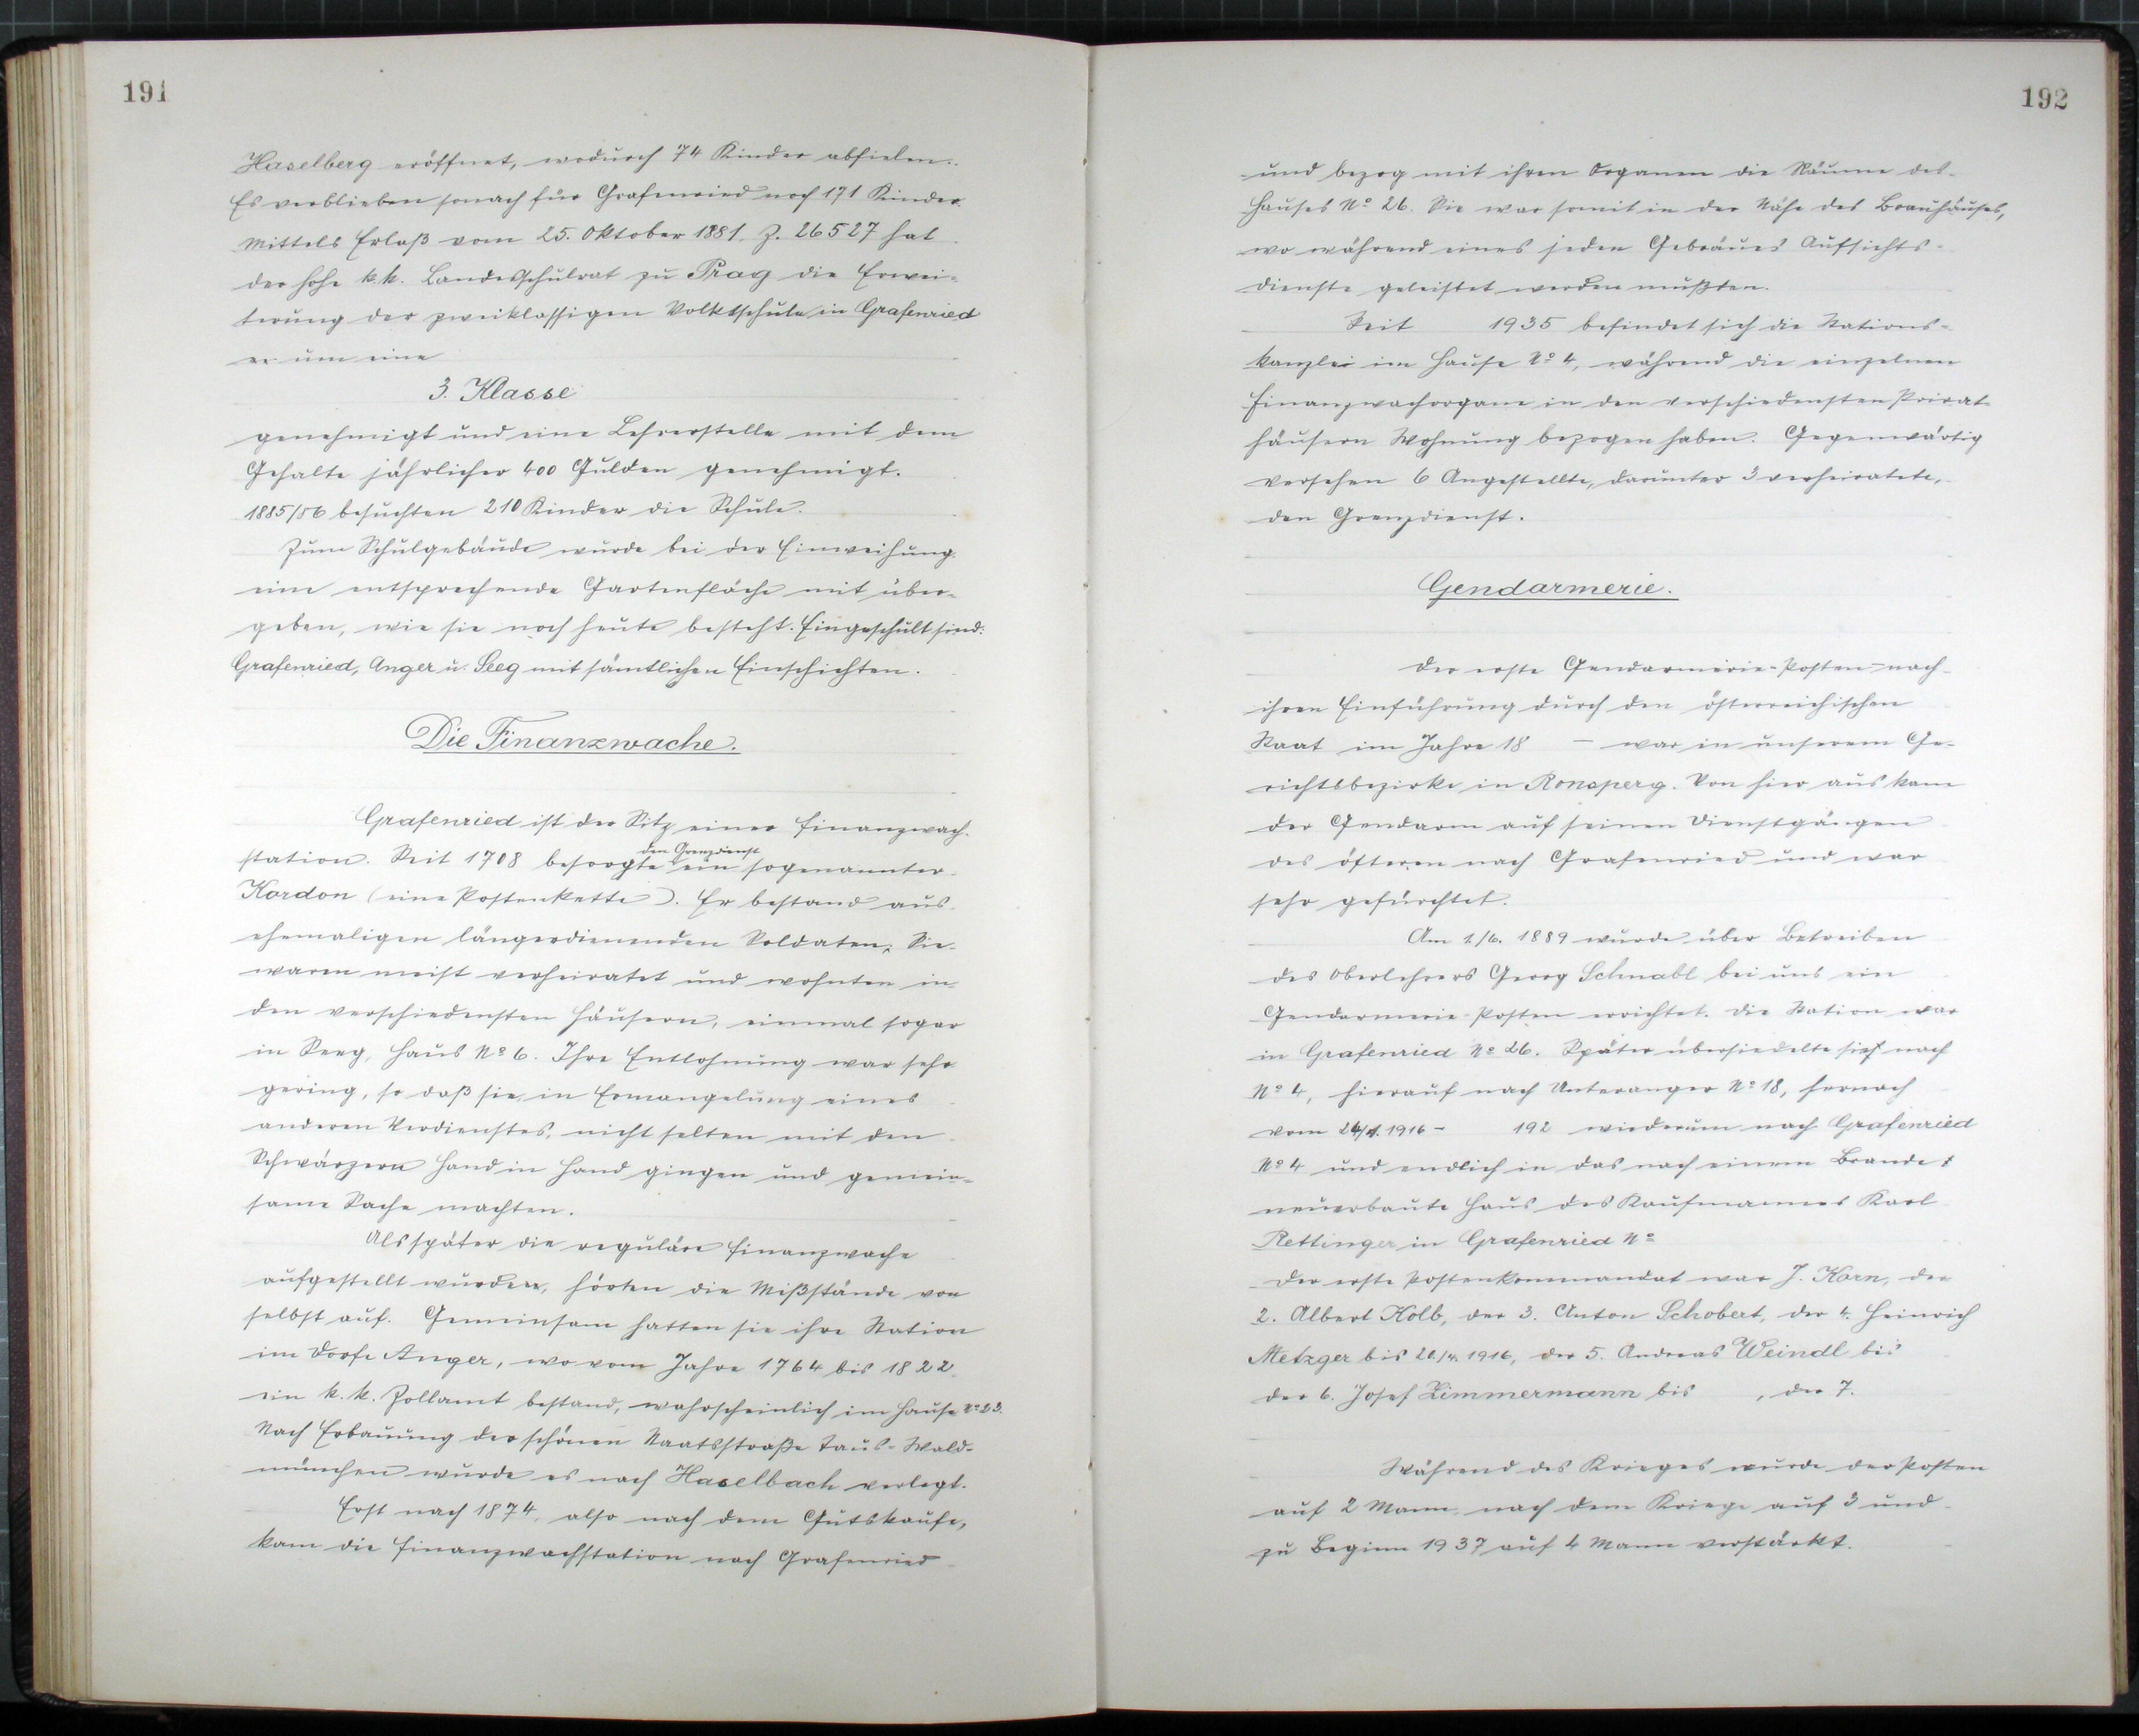 191
Haselberg eröffnet, wodurch 74 Kinder abfielen.
Es verblieben sonach für Grafenried noch 171 Kinder.
Mittels Erlaß vom 25. Oktober 1881. Z. 26527 hat
der hohe k.k. Landesschulrat zu Prag die Erwei-
terung der zweiklassigen Volksschule in Grafenried
um eine
3. Klasse
genehmigt und eine Lehrerstelle mit dem
Gehalte jährlicher 400 Gulden genehmigt.
1885/86 besuchten 210 Kinder die Schule.
Zum Schulgebäude wurde bei der Einweihung
eine entsprechende Gartenfläche mit über-
geben, wie sie noch heute besteht. Eingeschult sind:
Grafenried, Anger u. Seeg mit sämtlichen Einschichten.
Die Finanzwache.
Grafenried ist der Sitz einer Finanzwach-
station. Seit 1708 besorgte den Grenzdienst ein sogenannter
Kordon (eine Postenkette). Er bestand aus
ehemaligen längerdienenden Soldaten. Sie
waren meist verheiratet und wohnten in
den verschiedensten Häusern, einmal sogar
in Seeg, Haus No 6. Ihre Entlohnung war sehr
gering, so daß sie, in Ermangelung eines
anderen Verdienstes, nicht selten mit den
Schwärzern Hand in Hand gingen und gemein-
same Sache machten.
Als später die reguläre Finanzwache
aufgestellt wurde, hörten die Mißstände von
selbst auf. Gemeinsam hatten sie ihre Station
im Dorfe Anger, wo vom Jahre 1764 bis 1822
ein k.k. Zollamt bestand, wahrscheinlich im Hause No 23.
Nach Erbauung der schönen Staatsstraße Taus-Wald-
münchen wurde es nach Haselbach verlegt.
Erst nach 1874, also nach dem Gutskaufe,
kam die Finanzwachstation nach Grafenried
192
und bezog mit ihren Organen die Räume des
Hauses No 26. Sie war somit in der Nähe des Brauhauses,
wo während eines jeden Gebräues Aufsichts-
dienste geleistet werden mußten.
Seit 1935 befindet sich die Stations-
kanzlei im Hause No 4, während die einzelnen
Finanzwachorgane in den verschiedensten Privat-
häusern Wohnung bezogen haben. Gegenwärtig
versehen 6 Angestellte, darunter 3 verheiratete,
den Grenzdienst.
Gendarmerie.
Der erste Gendarmerie-Posten - nach
ihrer Einführung durch den österreichischen
Staat im Jahre 18 - war in unserem Ge-
richtsbezirke in Ronsperg. Von hier aus kam
der Gendarm auf seinen Dienstgängen
des öfteren nach Grafenried und war
sehr gefürchtet.
Am 1./6. 1889 wurde über Betreiben
des Oberlehrers Georg Schnabl bei uns ein
Gendarmerie-Posten errichtet. Die Station war
in Grafenried No 26. Später übersiedelte sie nach
No 4, hierauf nach Unteranger No 18, hernach
vom 1916 - 192 wiederum nach Grafenried
No 4 und endlich in das nach einem Brande
neuerbaute Haus des Kaufmannes Karl
Rettinger in Grafenried No
Der erste Postenkommandat war J. Korn, der
2. Albert Kolb, der 3. Anton Schobert, der 4. Heinrich
Metzger bis 1916, der 5. Andreas Weindl bis
der 6. Josef Zimmermann bis , der 7.
Während des Krieges wurde der Posten
auf 2 Mann, nach dem Kriege auf 3 und
zu Beginn 1937 auf 4 Mann verstärkt.